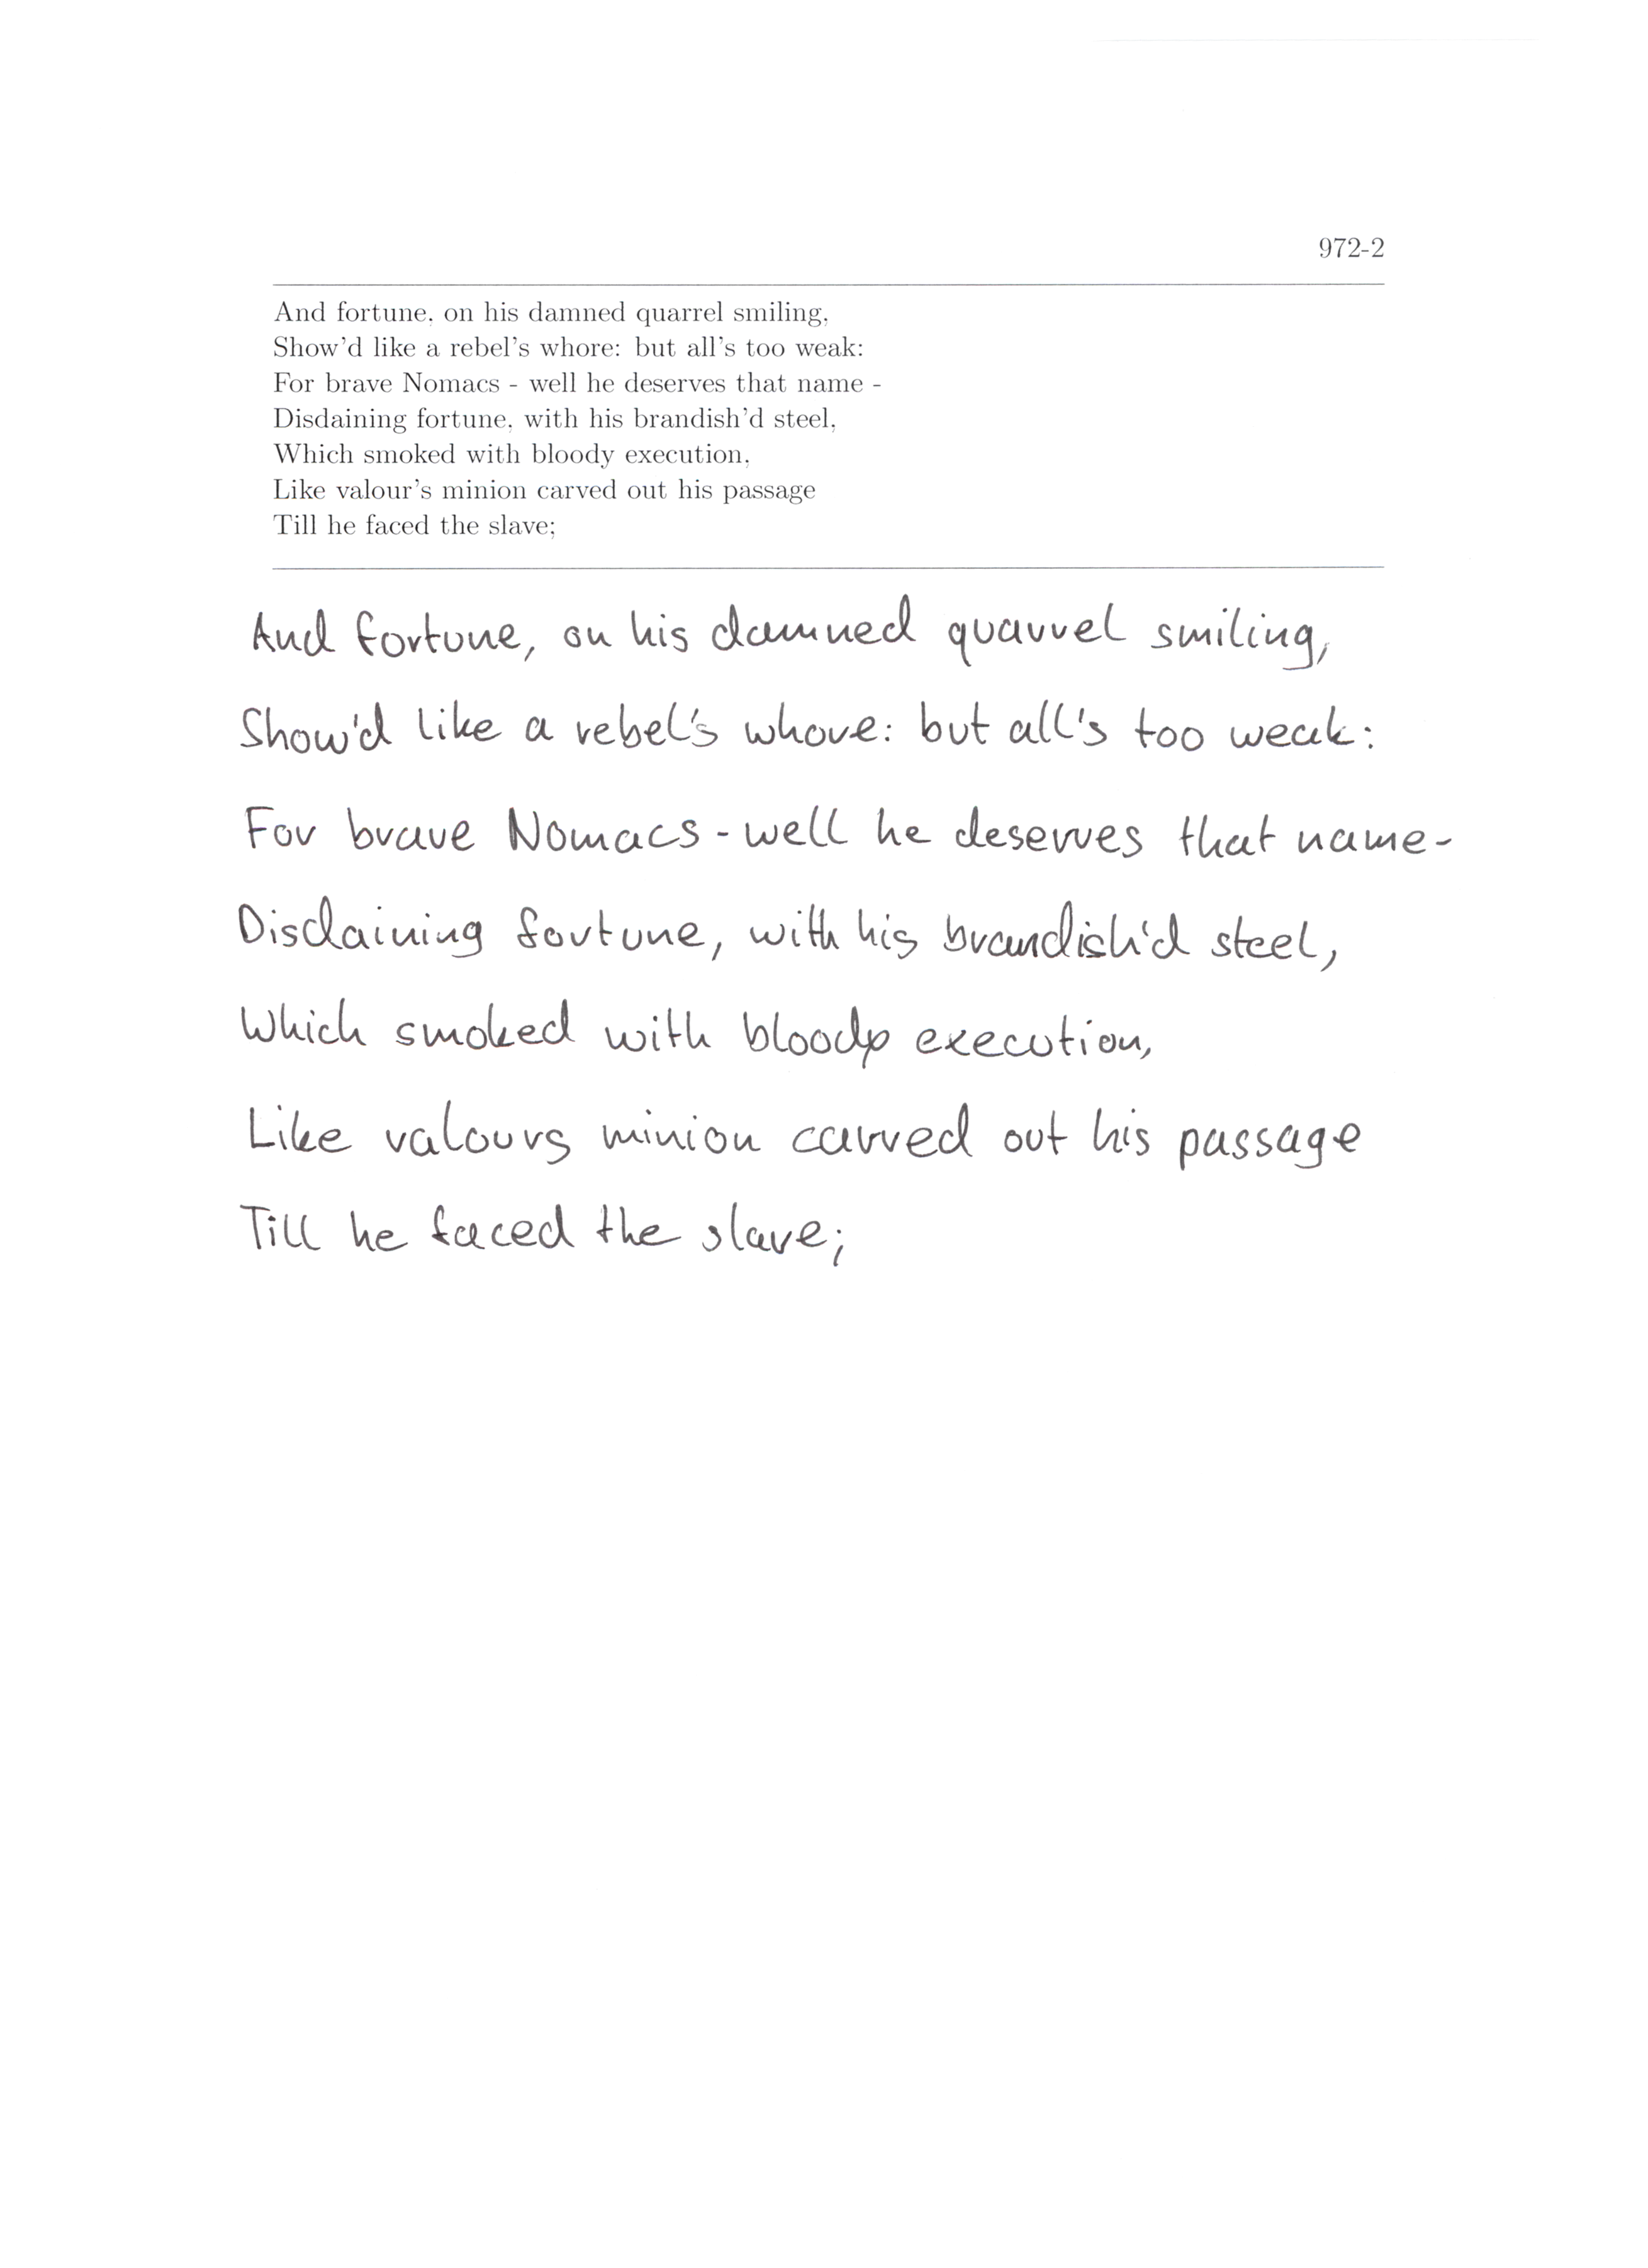 972-2
And fortune, on his damned quarrel smiling,
Show'd like a rebel's whore: but all's too weak:
For brave Nomacs - well he deserves that name -
Disdaining fortune, with his brandish'd steel,
Which smoked with bloody execution,
Like valour's minion carved out his passage
Till he faced the slave;
And fortune, on his damned quarrel smiling,
Show'd like a rebel's whore: but all's too weak:
For brave Nomacs - well he deserves that name -
Disdaining fortune, with his brandish'd steel,
Which smoked with bloody execution,
Like valours minion carved out his passage
Till he faced the slave;